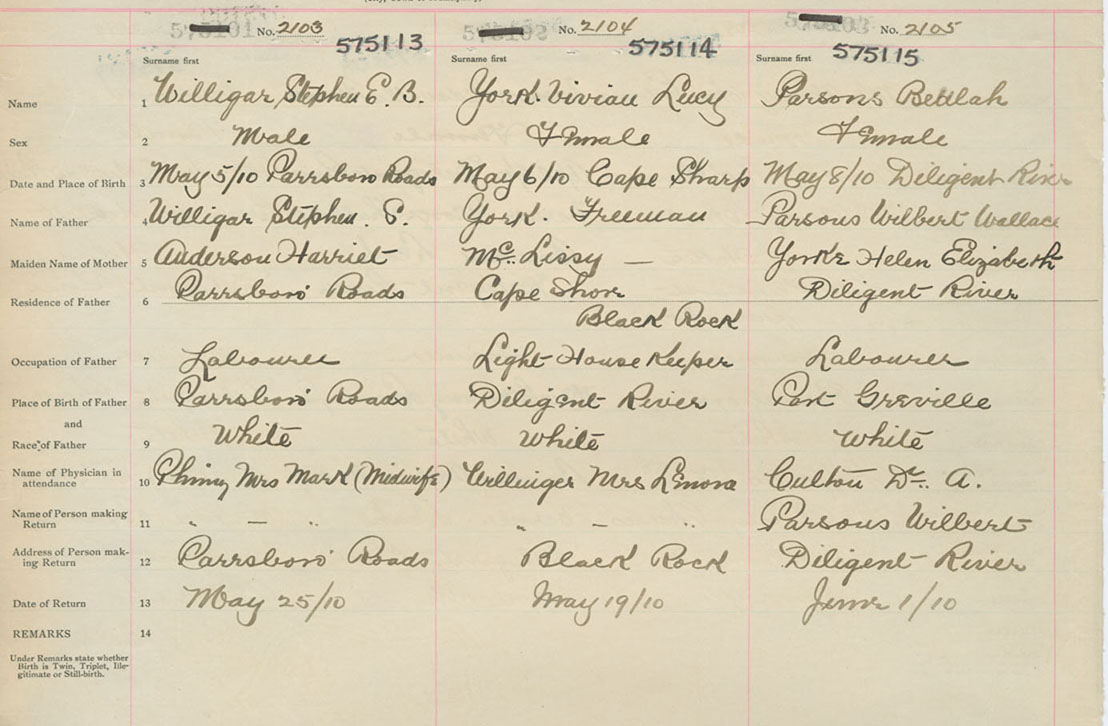 No. 2103 No. 2104 No. 2105
575113 575114 575115
Surname first Surname first Surname first
Name 1 Willigar Stephen E. B. York. Vivian Lucy Parsons Beulah
Sex 2 Male Female Female
Date and Place of Birth 3 May 5/10 Parrsboro Roads May 6/10 Cape Sharp May 8/10 Diligent River
Name of Father 4 Willigar Stephen. S. York. Freeman Parsons Wilbert Wallace
Maiden Name of Mother 5 Anderson Harriet Mc. Lissy — Yorke Helen Elizabeth
Residence of Father 6 Parrsboro' Roads Cape Shore Diligent River
Black Rock
Occupation of Father 7 Labourer Light House Keeper Labourer
Place of Birth of Father 8 Parrsboro' Roads Diligent River Port Greville
and
Race of Father 9 White White White
Name of Physician in
attendance 10 Mrs Mark (Midwife) Willinger Mrs Lenora Dr. A.
Name of Person making
Return 11 " — " " — " Parsons Wilbert
Address of Person mak-
ing Return 12 Parrsboro' Roads Black Rock Diligent River
Date of Return 13 May 25/10 May 19/10 June 1/10
REMARKS 14
Under Remarks state whether
Birth is Twin, Triplet, Ille-
gitimate or Still-birth.